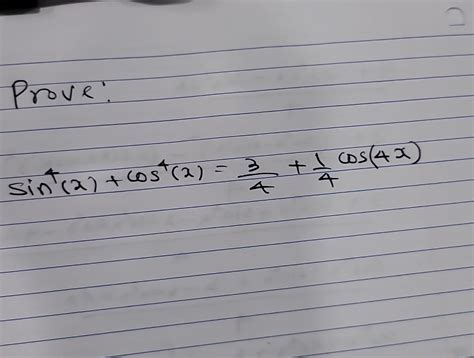 Prove:
sin⁴(x) + cos⁴(x) = 3/4 + 1/4 cos(4x)